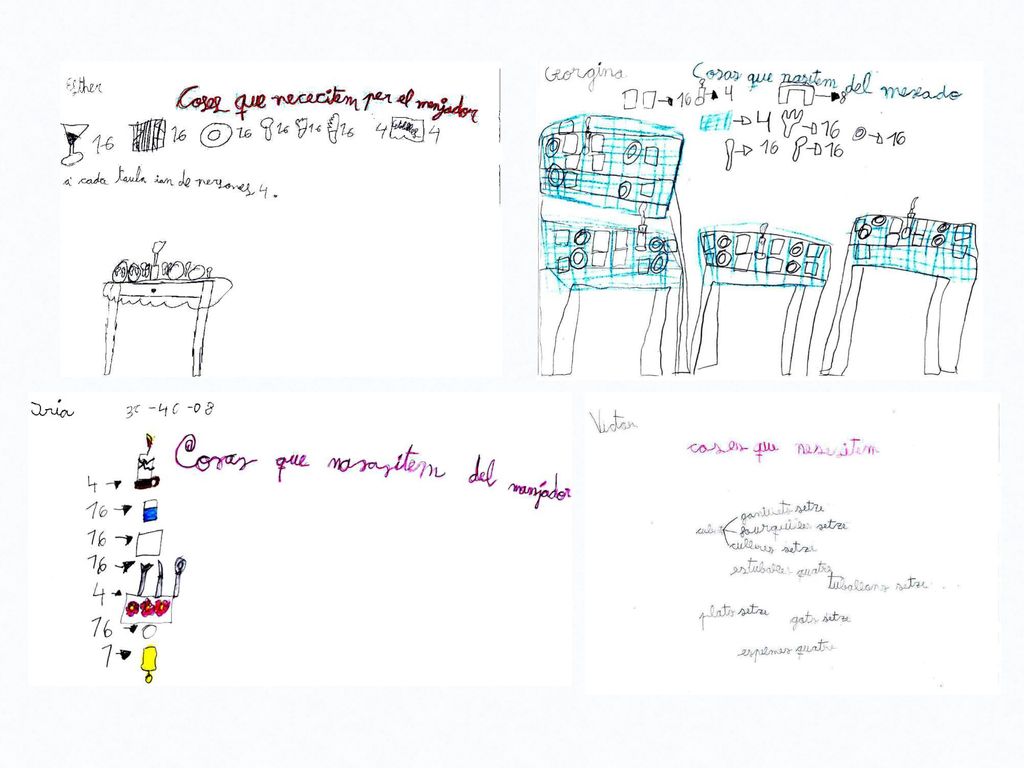 Esther
Coses que nececitem per el menjador
16 16 16 16 16 16 4 4
a cada taula ian de persones 4.
Georgina
Cosas que nasitem del mexado
16 4 8
4 16 16
16 16
Iria 3C-4C-08
Cosas que nasasitem del manjador
4
16
16
16
4
16
1
Victor
coses que nesesitem
ganivets setze
fourquilles setze
culleres setze
quatre
setze
plats setze
gots setze
espelmes quatre